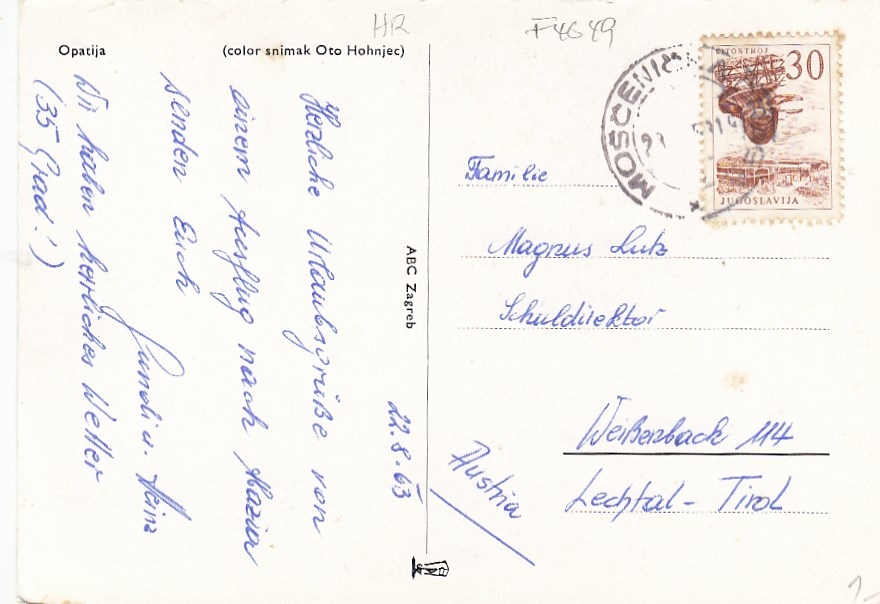 HR
F4649
Opatija
(color snimak Oto Hohnjec)
22.8.63
Herzliche Urlaubsgrüße von
einem Ausflug nach
senden Euch
Gundi u. Heinz
Wir haben herrliches Wetter
(35 Grad!)
ABC Zagreb
LITOSTROJ
30
JUGOSLAVIJA
Familie
Magnus Lutz
Schuldirektor
Weißenbach 114
Lechtal - Tirol
Austria